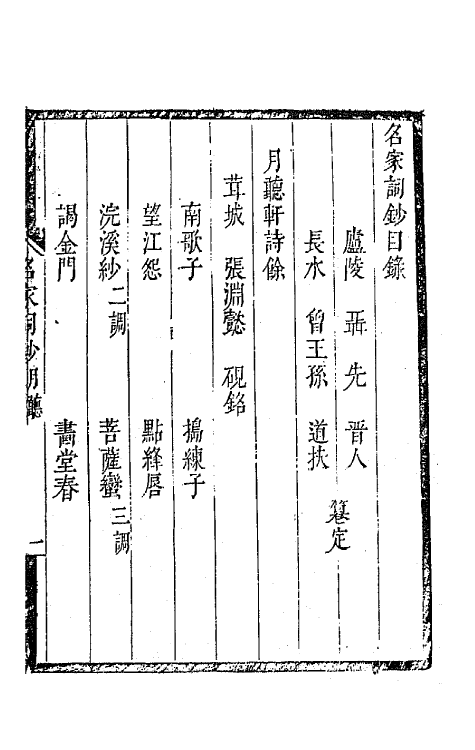 名家詞鈔目錄
廬陵　聶先　晉人
長水　曾王孫　道扶
篹定
月聽軒詩餘
茸城　張淵懿　硯銘
南歌子　搗練子
望江怨　點絳唇
浣溪紗二調　菩薩蠻三調
謁金門　畵堂春
名家詞鈔月聽　一